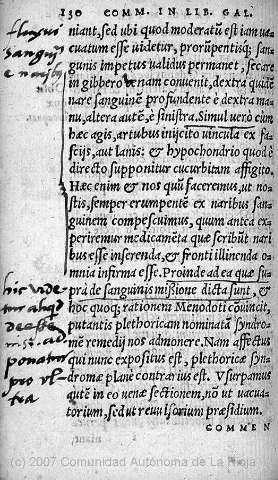 130 COMM. IN LIB. GAL.
niant, sed ubi quod moderatũ est iam va
cuatum esse uidetur, prorũpentisq; san
gunis impetus validus permanet, secare
in gibbero venam convenit, dextra quidẽ
nare sanguinẽ profundente è dextra ma
nu, altera autẽ, è sinistra. Simul verò cùm
hæc agis, artubus inijcito uincula ex fa-
scijs, aut lanis: & hypochondrio quod è
directo supponitur cucurbitam affigito.
Hæc enim & nos quũ faceremus, ut no-
stis, semper erumpentẽ ex naribus san-
guinem compescuimus, quum anteà ex-
periremur medicamẽta quæ scribũt nari
bus esse inserenda, & fronti illinenda o-
mnia infirma esse. Proinde ad ea quæ su-
prà de sanguinis missione dicta sunt, &
hoc quoq; rationem Menodoti cõuincit,
putantis plethoricam nominatã syndro-
mẽ remedij nos admonere. Nam affectus
qui nunc expositus est, plethoricæ syn-
dromæ planè contrarius est. Vsurpamus
qutẽ in eo uenæ sectionem, nõ ut vacua-
torium, sed ut reuulsorium præsidium.
COMMEN
fluxui
sanguin
e naribus
hic vide
tur aliqd
deesse
ponatur
pro vl-
tra
(c) 2007 Comunidad Autónoma de La Rioja